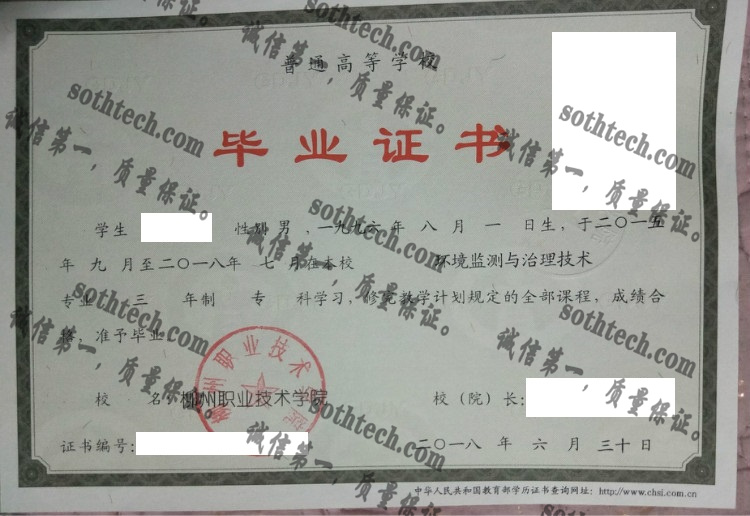 普通高等学校
毕业证书
学生 性别 男 ,一九九六年 八 月 一 日生,于二〇一五
年 九 月至二〇一八年 七 月在本校 环境监测与治理技术
专业 三 年制 专 科学习,修完教学计划规定的全部课程,成绩合
格,准予毕业。
校 名:柳州职业技术学院 校(院)长:
柳州职业技术学院
证书编号: 二〇一八 年 六 月 三十 日
中华人民共和国教育部学历证书查询网址: http://www.chsi.com.cn
sothtech.com
诚信第一,质量保证。
sothtech.com
诚信第一,质量保证。
sothtech.com
诚信第一,质量保证。
sothtech.com
诚信第一,质量保证。
sothtech.com
诚信第一,质量保证。
sothtech.com
诚信第一,质量保证。
sothtech.com
诚信第一,质量保证。
sothtech.com
sothtech.com